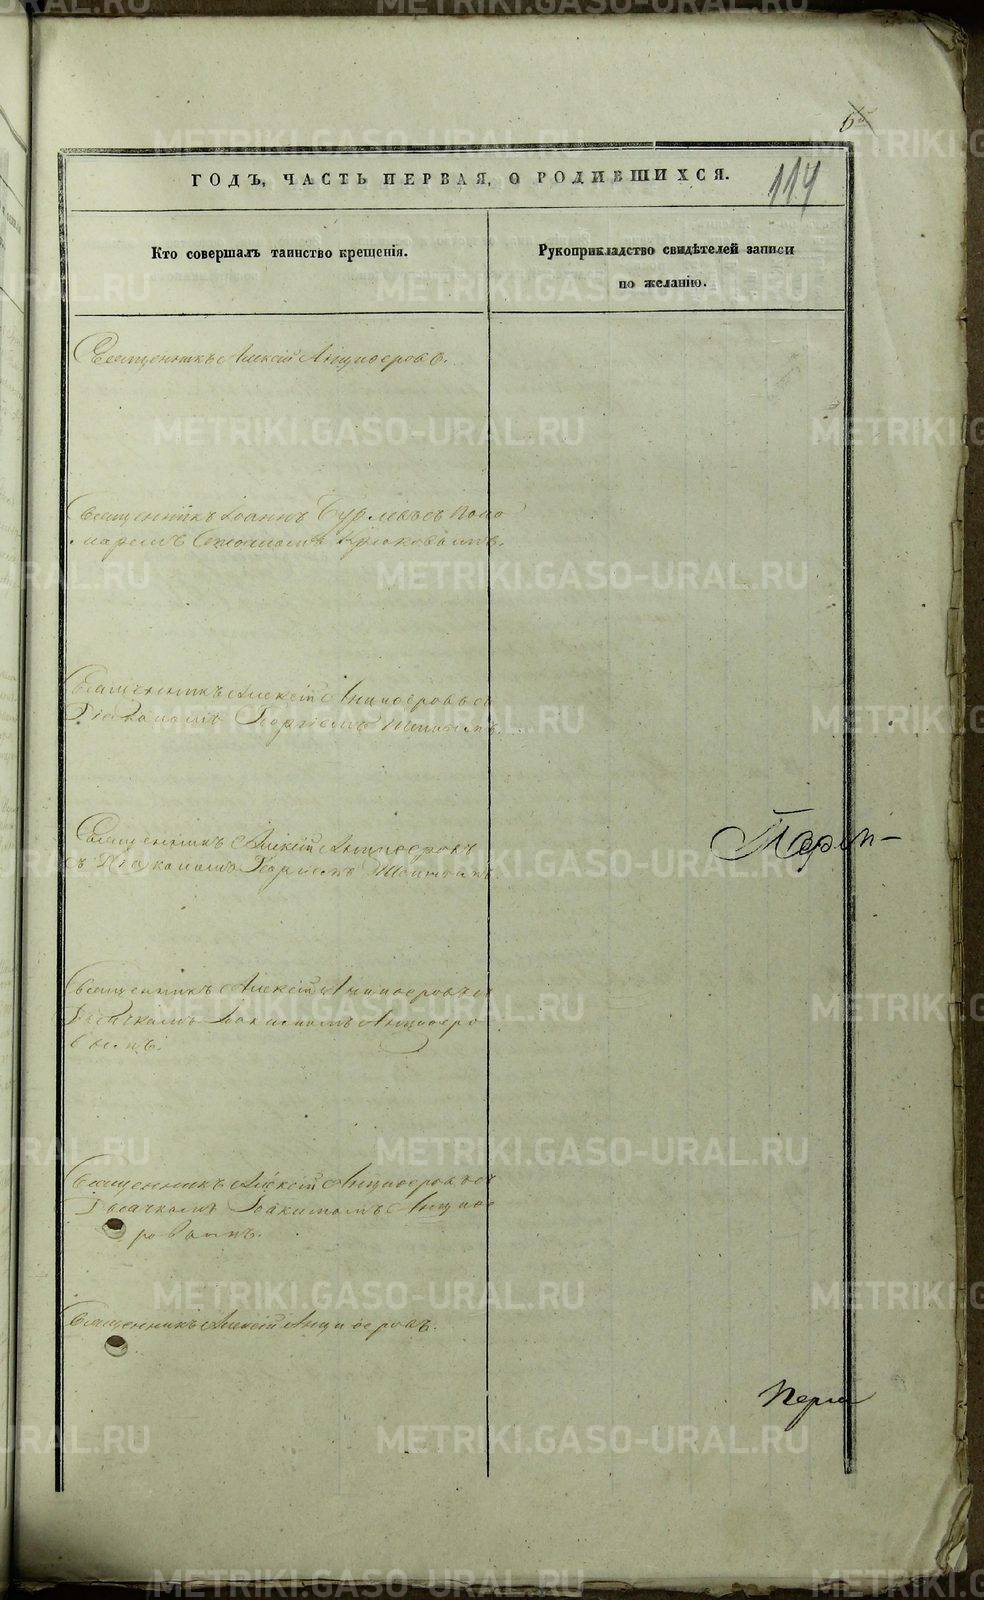 114
ГОДЪ, ЧАСТЬ ПЕРВАЯ, О РОДИВШИХСЯ.
Кто совершалъ таинство крещенія.
Рукоприкладство свидѣтелей записи
по желанію.
Священникъ Алексій Анциферовъ.
Священникъ Іоаннъ Бурлевъ съ Поно
маремъ Крюковымъ.
Священникъ Алексій Анциферовъ съ
Діакономъ Георгіемъ
Священникъ Алексій Анциферовъ
съ Діакономъ Георгіемъ
Священникъ Алексій Анциферовъ съ
Дьячкомъ Іоакимомъ Анциферо
вымъ.
Священникъ Алексій Анциферовъ съ
Дьячкомъ Іоакимомъ Анцифе
ровымъ.
Священникъ Алексій Анциферовъ.
METRIKI.GASO-URAL.RU